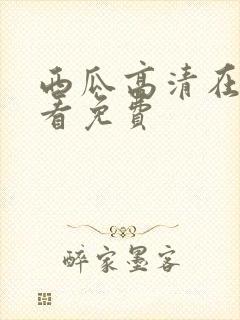 西瓜高清在
看免费
醉家墨客